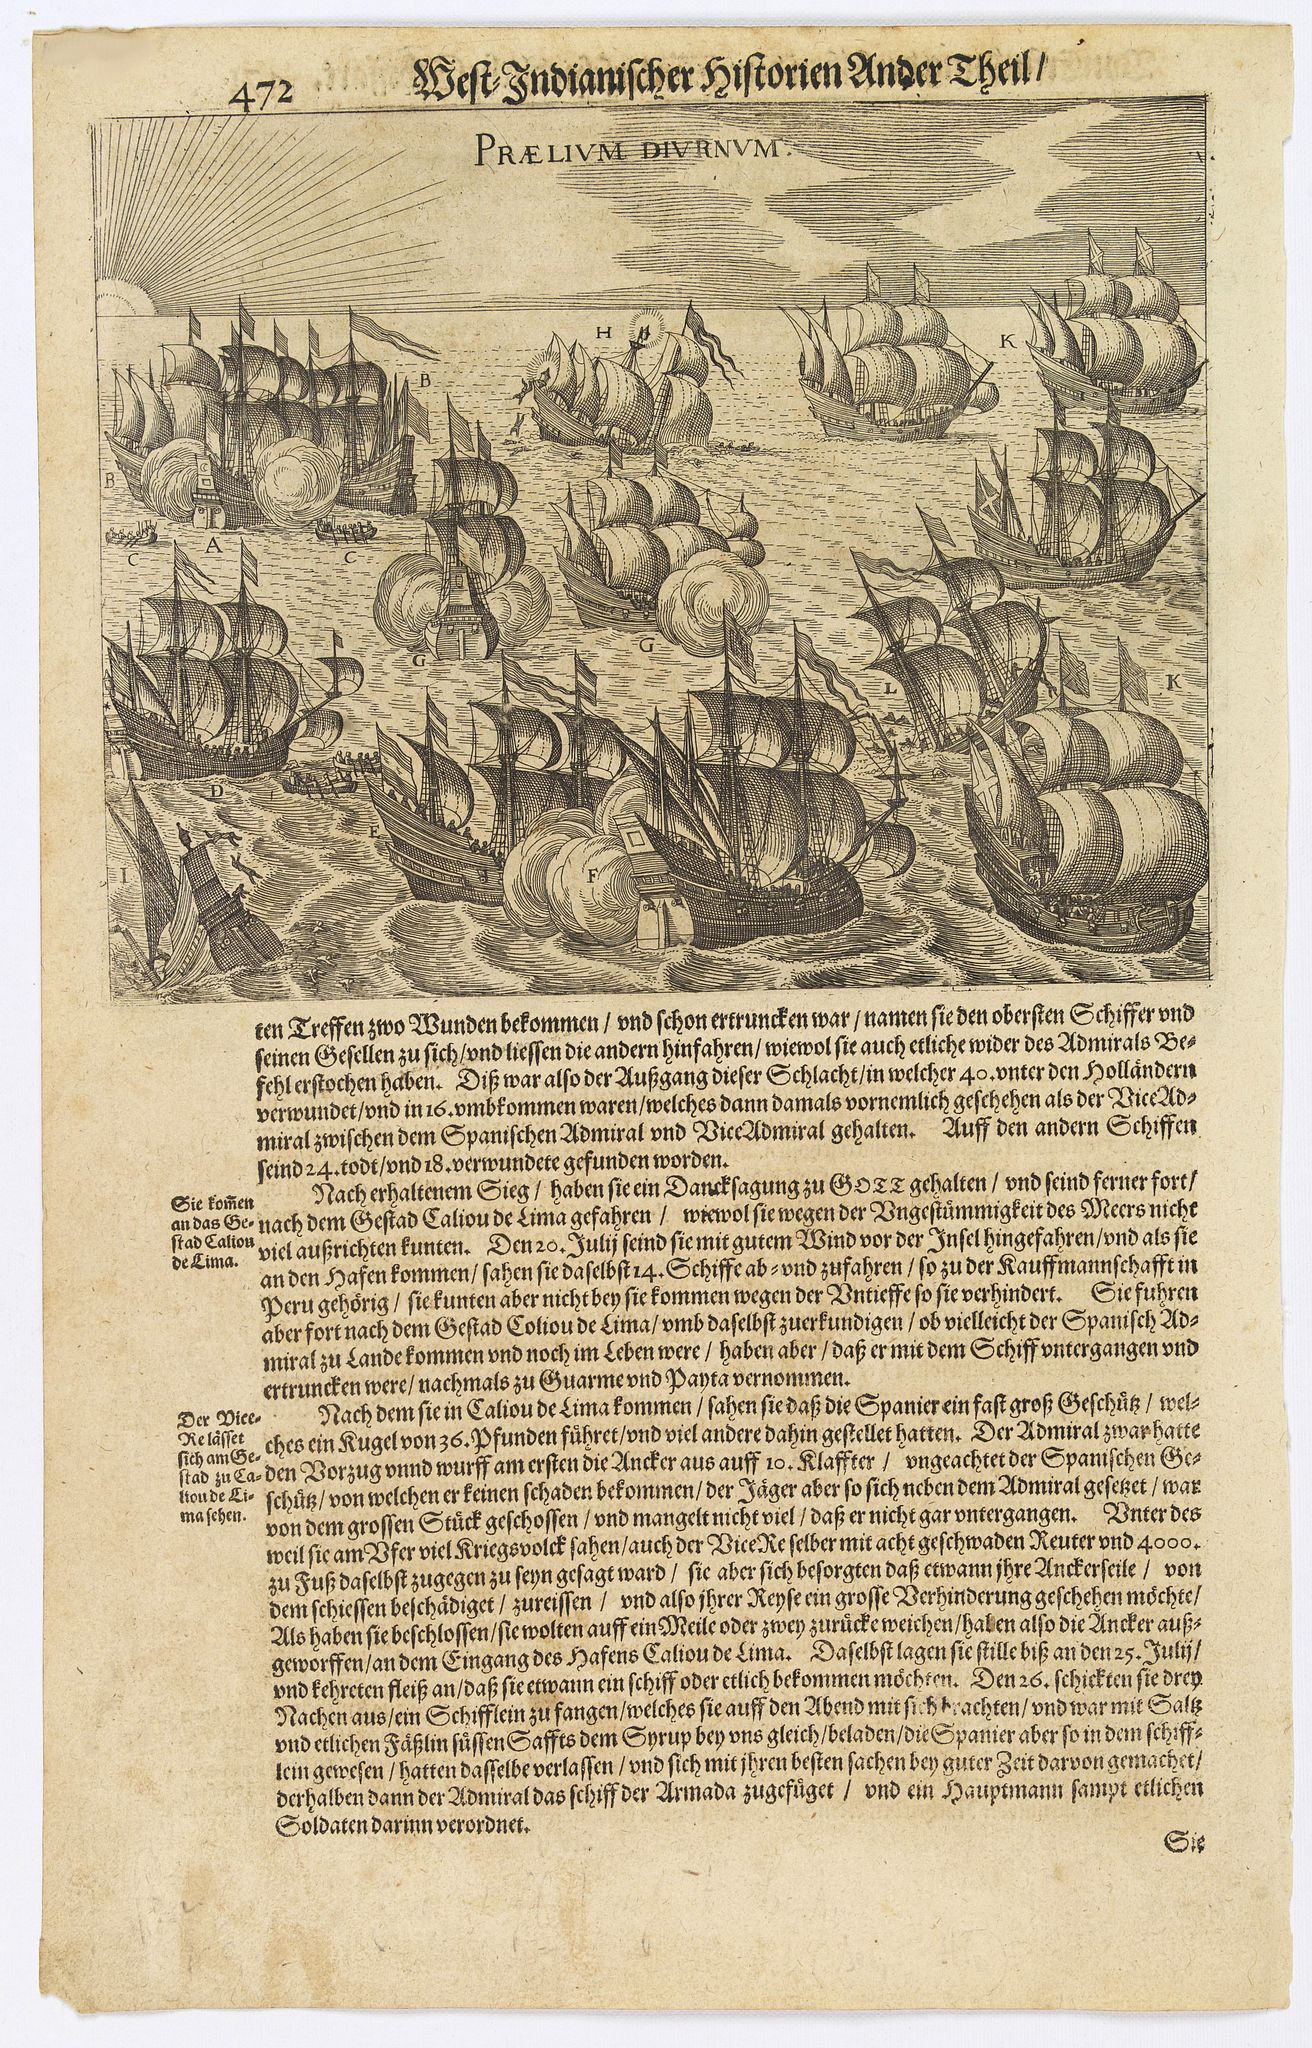 472
West-Indianischer Historien Ander Theil/
PRÆLIVM DIVRNVM.
H
K
B
B
C
A
C
G
G
L
K
D
E
F
I
ten Treffen zwo Wunden bekommen / vnd schon ertruncken war / namen sie den obersten Schiffer vnd
seinen Gesellen zu sich/vnd liessen die andern hinfahren/ wiewol sie auch etliche wider des Admirals Be-
fehl erstochen haben. Diß war also der Außgang dieser Schlacht/in welcher 40. vnter den Holländern
verwundet/vnd in 16. vmbkommen waren/welches dann damals vornemlich geschehen als der ViceAd-
miral zwischen dem Spanischen Admiral vnd ViceAdmiral gehalten. Auff den andern Schiffen
seind 24. todt/vnd 18. verwundete gefunden worden.
Nach erhaltenem Sieg/ haben sie ein Dancksagung zu GOTT gehalten/ vnd seind ferner fort/
Sie kom̃en
an das Ge-
stad Caliou
de Lima.
nach dem Gestad Caliou de Lima gefahren / wiewol sie wegen der Vngestümmigkeit des Meers nicht
viel außrichten kunten. Den 20. Julij seind sie mit gutem Wind vor der Insel hingefahren/vnd als sie
an den Hafen kommen/ sahen sie daselbst 14. Schiffe ab- vnd zufahren / so zu der Kauffmannschafft in
Peru gehörig / sie kunten aber nicht bey sie kommen wegen der Vntieffe so sie verhindert. Sie fuhren
aber fort nach dem Gestad Coliou de Lima/ vmb daselbst zuerkundigen / ob vielleicht der Spanisch Ad-
miral zu Lande kommen vnd noch im Leben were / haben aber / daß er mit dem Schiff vntergangen vnd
ertruncken were/ nachmals zu Guarme vnd Payta vernommen.
Nach dem sie in Caliou de Lima kommen / sahen sie daß die Spanier ein fast groß Geschütz / wel-
Der Vice-
Re lässet
sich am Ge-
stad zu Ca-
liou de Li-
ma sehen.
ches ein Kugel von 36. Pfunden führet/vnd viel andere dahin gestellet hatten. Der Admiral zwar hatte
den Vorzug vnnd wurff am ersten die Ancker aus auff 10. Klaffter / vngeachtet der Spanischen Ge-
schütz/ von welchen er keinen schaden bekommen/ der Jäger aber so sich neben dem Admiral gesetzet / war
von dem grossen Stück geschossen / vnd mangelt nicht viel / daß er nicht gar vntergangen. Vnter des
weil sie am Vfer viel Kriegsvolck sahen/auch der ViceRe selber mit acht geschwaden Reuter vnd 4000.
zu Fuß daselbst zugegen zu seyn gesagt ward / sie aber sich besorgten daß etwann jhre Anckerseile / von
dem schiessen beschädiget / zureissen / vnd also jhrer Reyse ein grosse Verhinderung geschehen möchte/
Als haben sie beschlossen/sie wolten auff ein Meile oder zwey zurücke weichen/haben also die Ancker auß-
geworffen/an dem Eingang des Hafens Caliou de Lima. Daselbst lagen sie stille biß an den 25. Julij/
vnd kehreten fleiß an/daß sie etwann ein schiff oder etlich bekommen möchten. Den 26. schickten sie drey
Nachen aus/ein Schifflein zu fangen/welches sie auff den Abend mit sich brachten/ vnd war mit Saltz
vnd etlichen Fäßlin süssen Saffts dem Syrup bey vns gleich/beladen/die Spanier aber so in dem schiff-
lein gewesen / hatten dasselbe verlassen / vnd sich mit jhren besten sachen bey guter Zeit darvon gemachet/
derhalben dann der Admiral das schiff der Armada zugefüget / vnd ein Hauptmann sampt etlichen
Soldaten darinn verordnet.
Sie